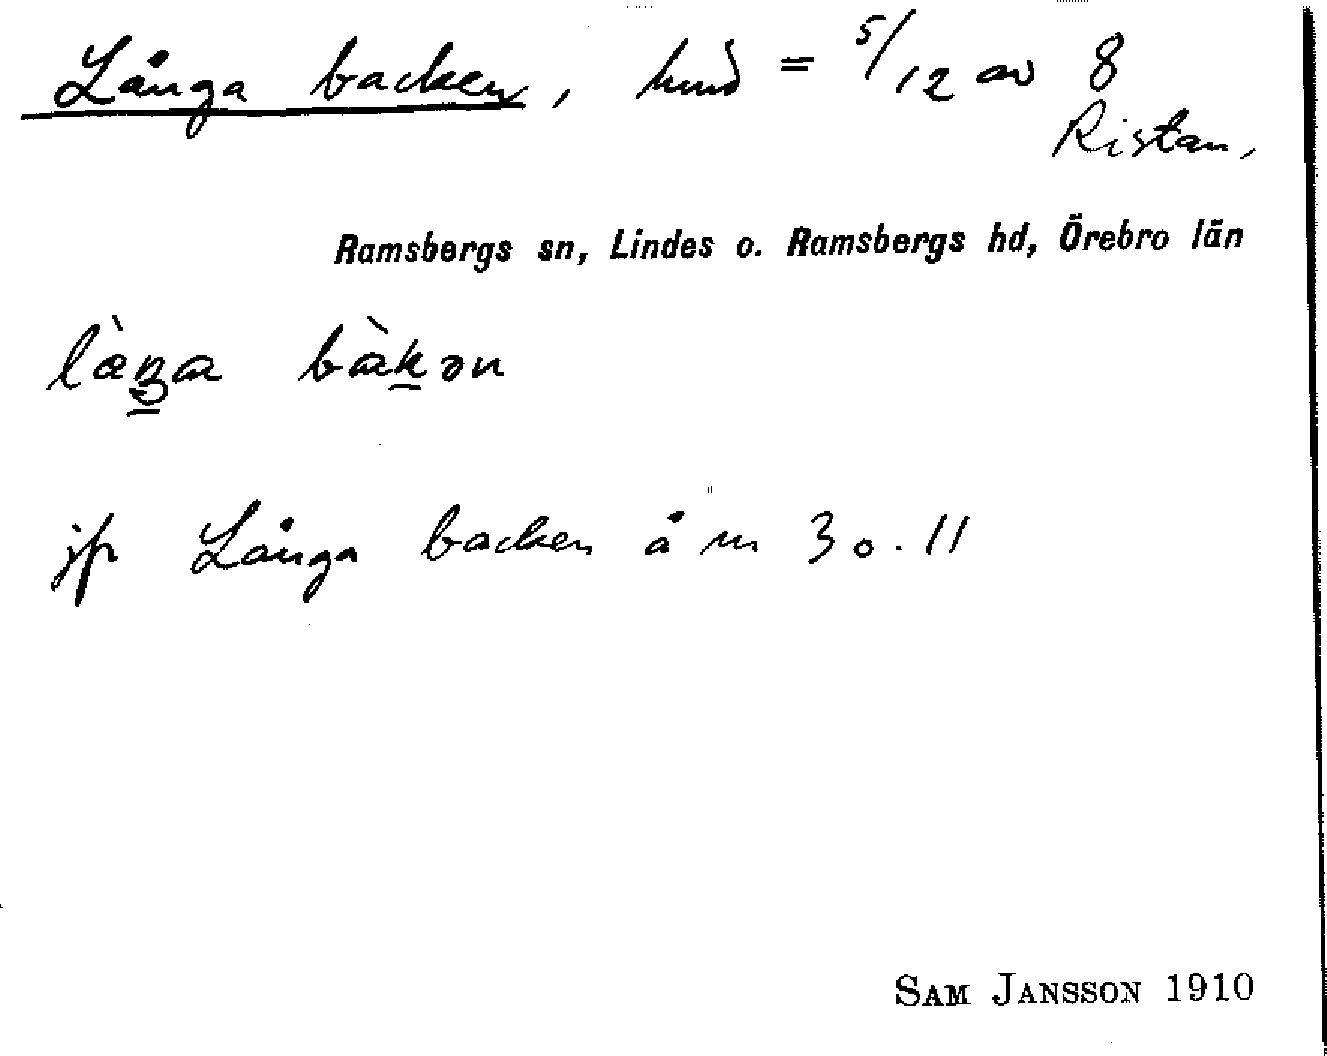 Långa backen, hmd = 5/12 av 8
Ristan,
Ramsbergs sn, Lindes o. Ramsbergs hd, Örebro län
làŋa bàkən
jfr Långa backen å m 30.11
SAM JANSSON 1910